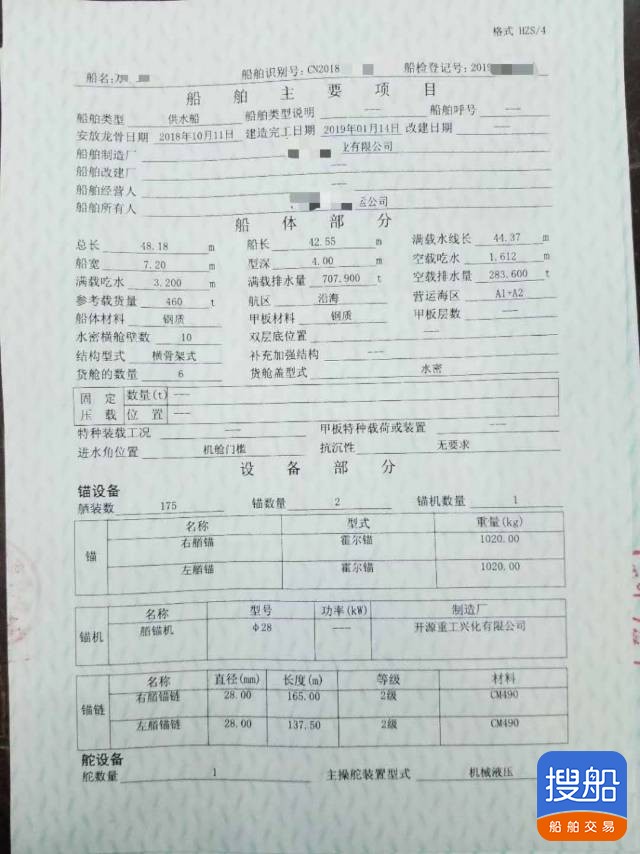 格式 HZS/4
船名: 船舶识别号: CN2018 船检登记号: 2019
船舶主要项目
船舶类型 供水船 船舶类型说明 --- 船舶呼号 ---
安放龙骨日期 2018年10月11日 建造完工日期 2019年01月14日 改建日期 ---
船舶制造厂 业有限公司
船舶改建厂 ---
船舶经营人 ---
船舶所有人 运公司
船体部分
总长 48.18 m 船长 42.55 m 满载水线长 44.37 m
船宽 7.20 m 型深 4.00 m 空载吃水 1.612 m
满载吃水 3.200 m 满载排水量 707.900 t 空载排水量 283.600 t
参考载货量 460 t 航区 沿海 营运海区 A1+A2
船体材料 钢质 甲板材料 钢质 甲板层数 ---
水密横舱壁数 10 双层底位置 ---
结构型式 横骨架式 补充加强结构 ---
货舱的数量 6 货舱盖型式 水密
固定 数量(t) ---
压载 位置 ---
特种装载工况 --- 甲板特种载荷或装置 ---
进水角位置 机舱门槛 抗沉性 无要求
设备部分
锚设备
舾装数 175 锚数量 2 锚机数量 1
锚 名称 型式 重量(kg)
右艏锚 霍尔锚 1020.00
左艏锚 霍尔锚 1020.00
锚机 名称 型号 功率(kW) 制造厂
艏锚机 Φ28 --- 开源重工兴化有限公司
锚链 名称 直径(mm) 长度(m) 等级 材料
右艏锚链 28.00 165.00 2级 CM490
左艏锚链 28.00 137.50 2级 CM490
舵设备
舵数量 1 主操舵装置型式 机械液压
搜船
船舶交易